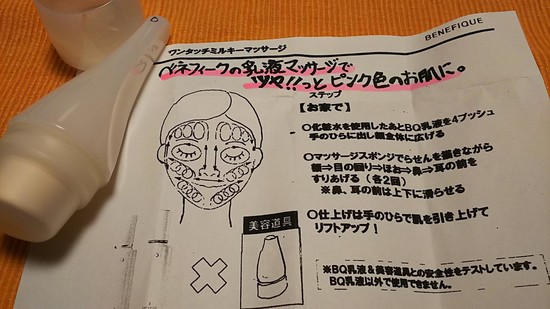 BENEFIQUE
ワンタッチミルキーマッサージ
ベネフィークの乳液マッサージで
ツヤ!!っとピンク色のお肌に。
ステップ
【お家で】
○化粧水を使用したあとBQ乳液を4プッシュ
手のひらに出し顔全体に広げる
○マッサージスポンジでらせんを描きながら
額⇒目の回り⇒ほお⇒鼻⇒耳の前を
すりあげる(各2回)
※鼻、耳の前は上下に滑らせる
○仕上げは手のひらで肌を引き上げて
リフトアップ!
美容道具
※BQ乳液&美容道具との安全性をテストしています。
BQ乳液以外で使用できません。